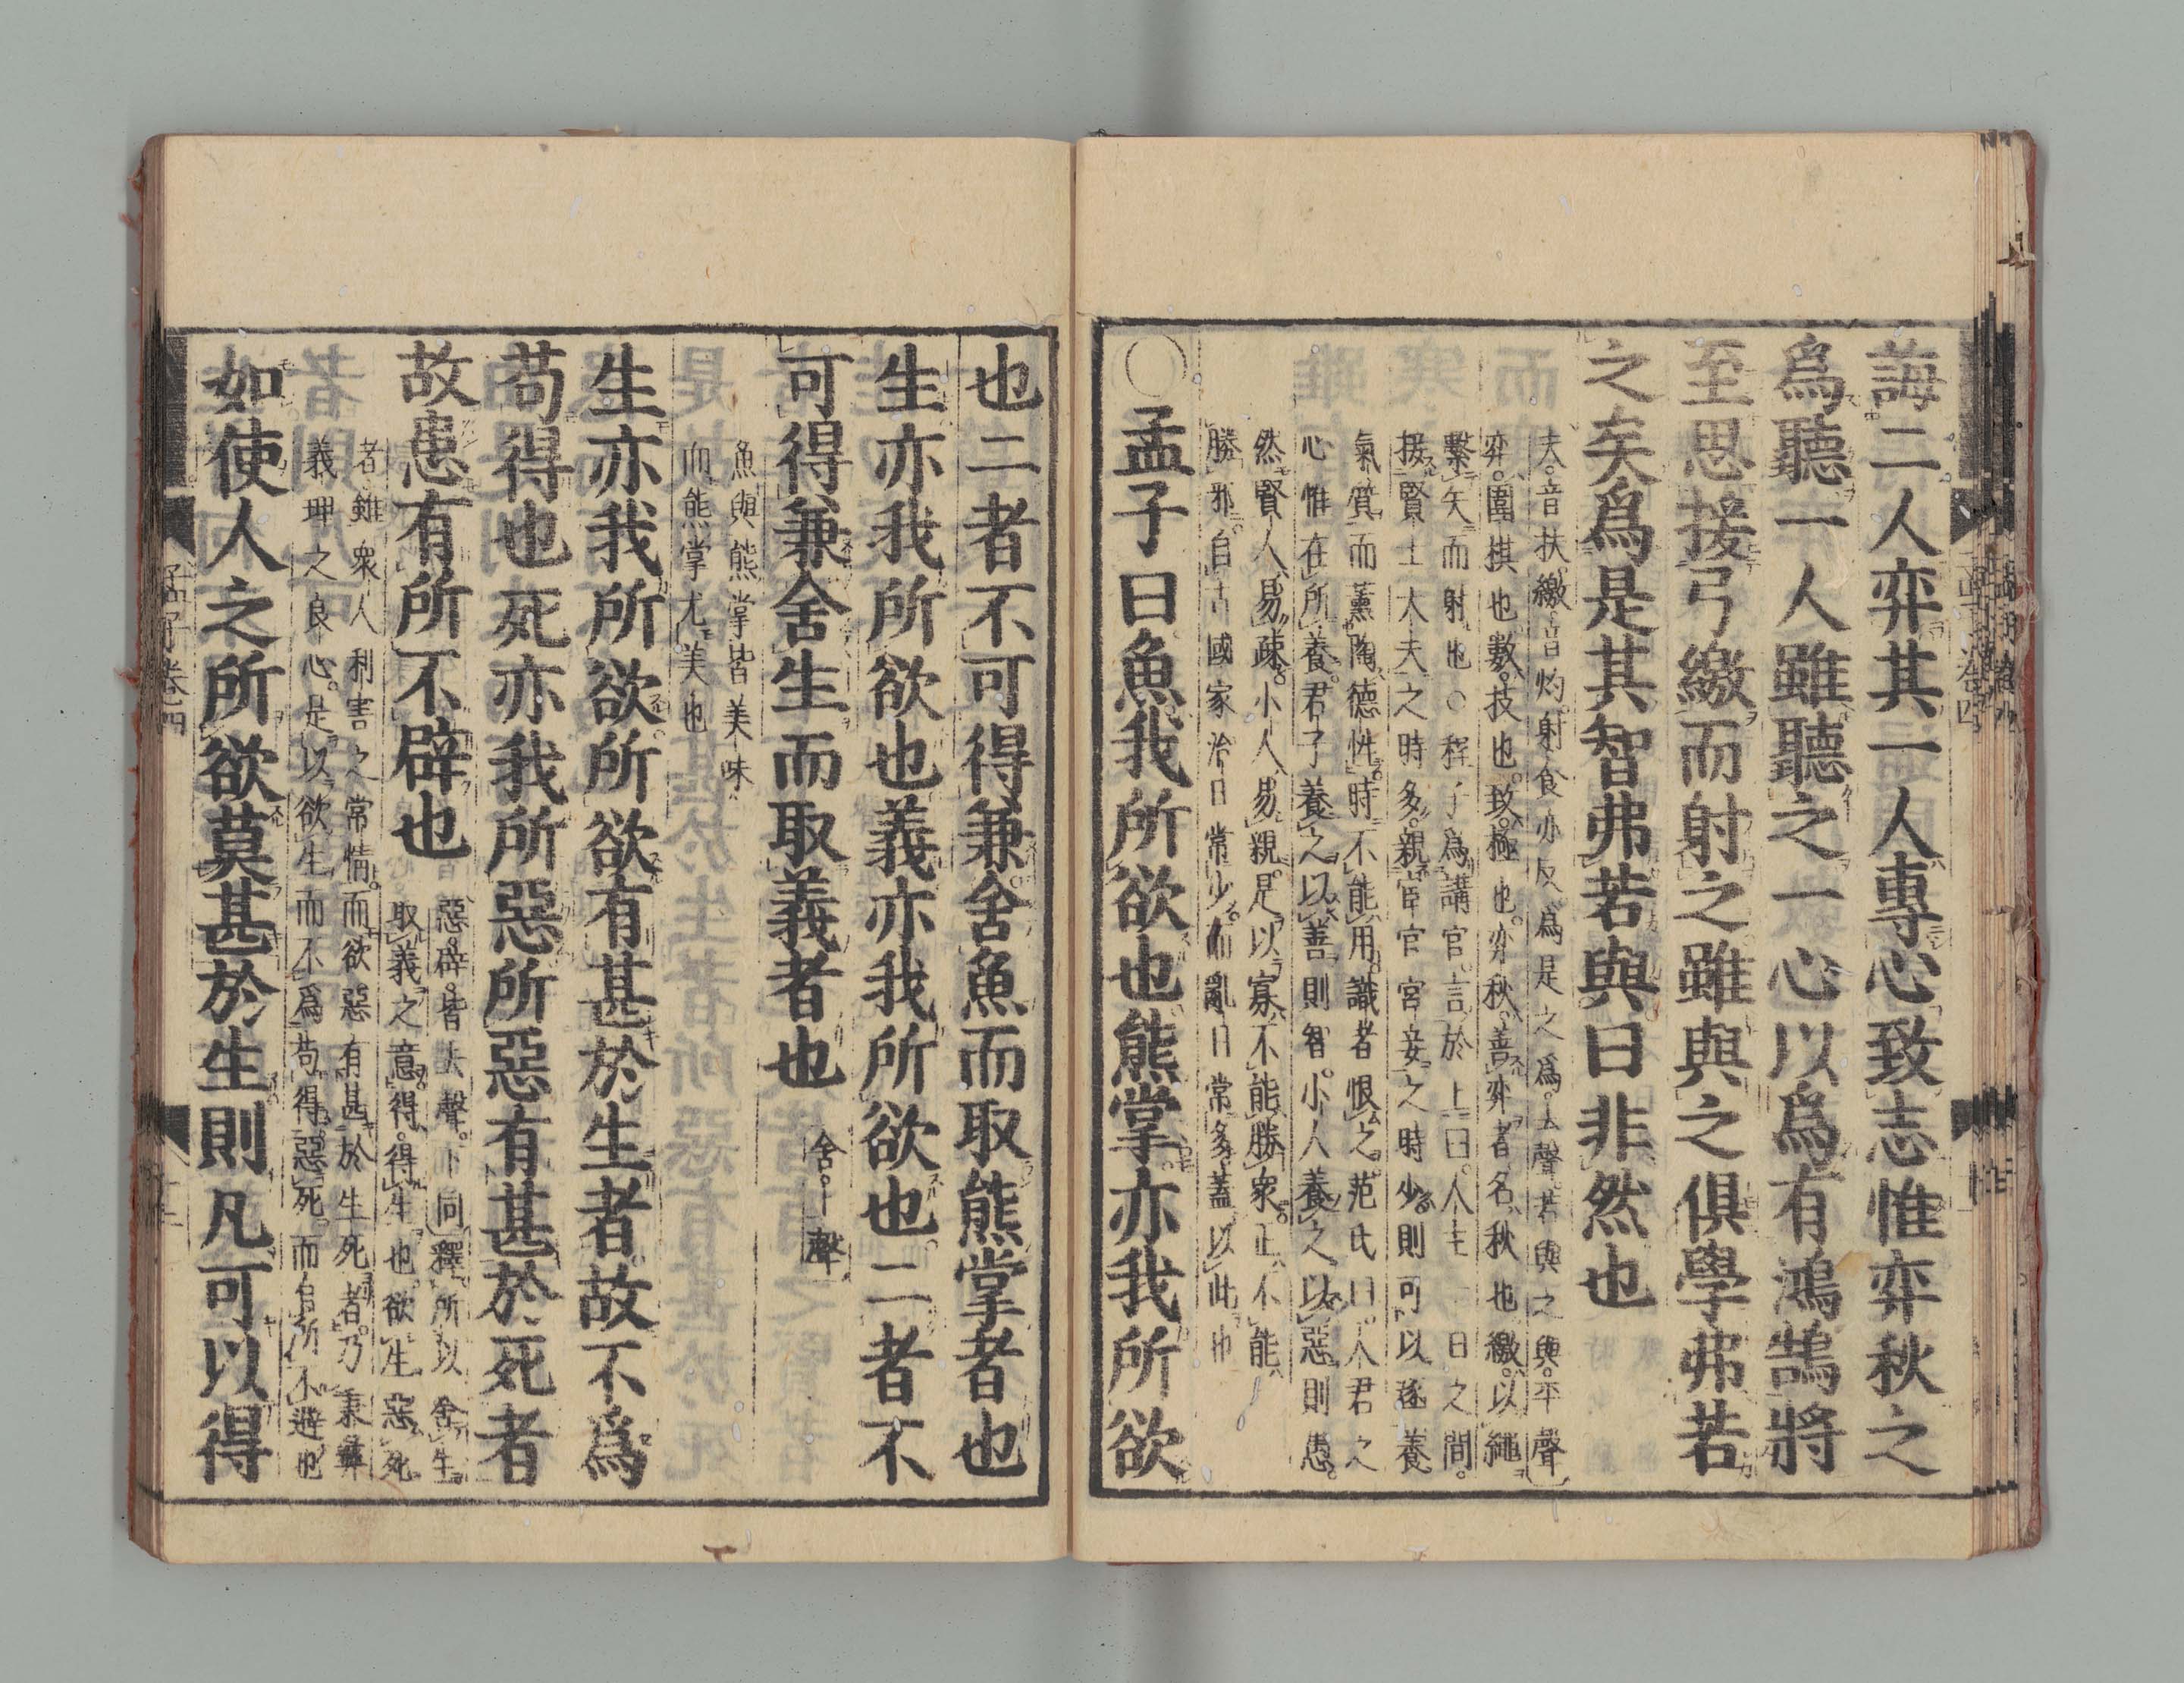 誨二人弈其一人專心致志惟弈秋之
爲聽一人雖聽之一心以爲有鴻鵠將
至思援弓繳而射之雖與之俱學弗若
之矣爲是其智弗若與曰非然也
夫音扶繳音灼射食亦反爲是之爲去聲若與之與平聲
弈圍棋也數技也致極也弈秋善弈者名秋也繳以繩
繫矢而射也○程子爲講官言於上曰人主一日之間
接賢士大夫之時多親宦官宮妾之時少則可以涵養
氣質而薰陶德性時不能用識者恨之范氏曰人君之
心惟在所養君子養之以善則智小人養之以惡則愚
然賢人易疎小人易親是以寡不能勝衆正不能
勝邪自古國家治日常少而亂日常多蓋以此也
○孟子曰魚我所欲也熊掌亦我所欲
也二者不可得兼舍魚而取熊掌者也
生亦我所欲也義亦我所欲也二者不
可得兼舍生而取義者也
舍上聲
魚與熊掌皆美味
而熊掌尤美也
生亦我所欲所欲有甚於生者故不爲
苟得也死亦我所惡所惡有甚於死者
故患有所不辟也
惡辟皆去聲下同釋所以舍生
取義之意得得生也欲生惡死
者雖衆人利害之常情而欲惡有甚於生死者乃秉彝
義理之良心是以欲生而不爲苟得惡死而有所不避也
如使人之所欲莫甚於生則凡可以得
孟子卷四